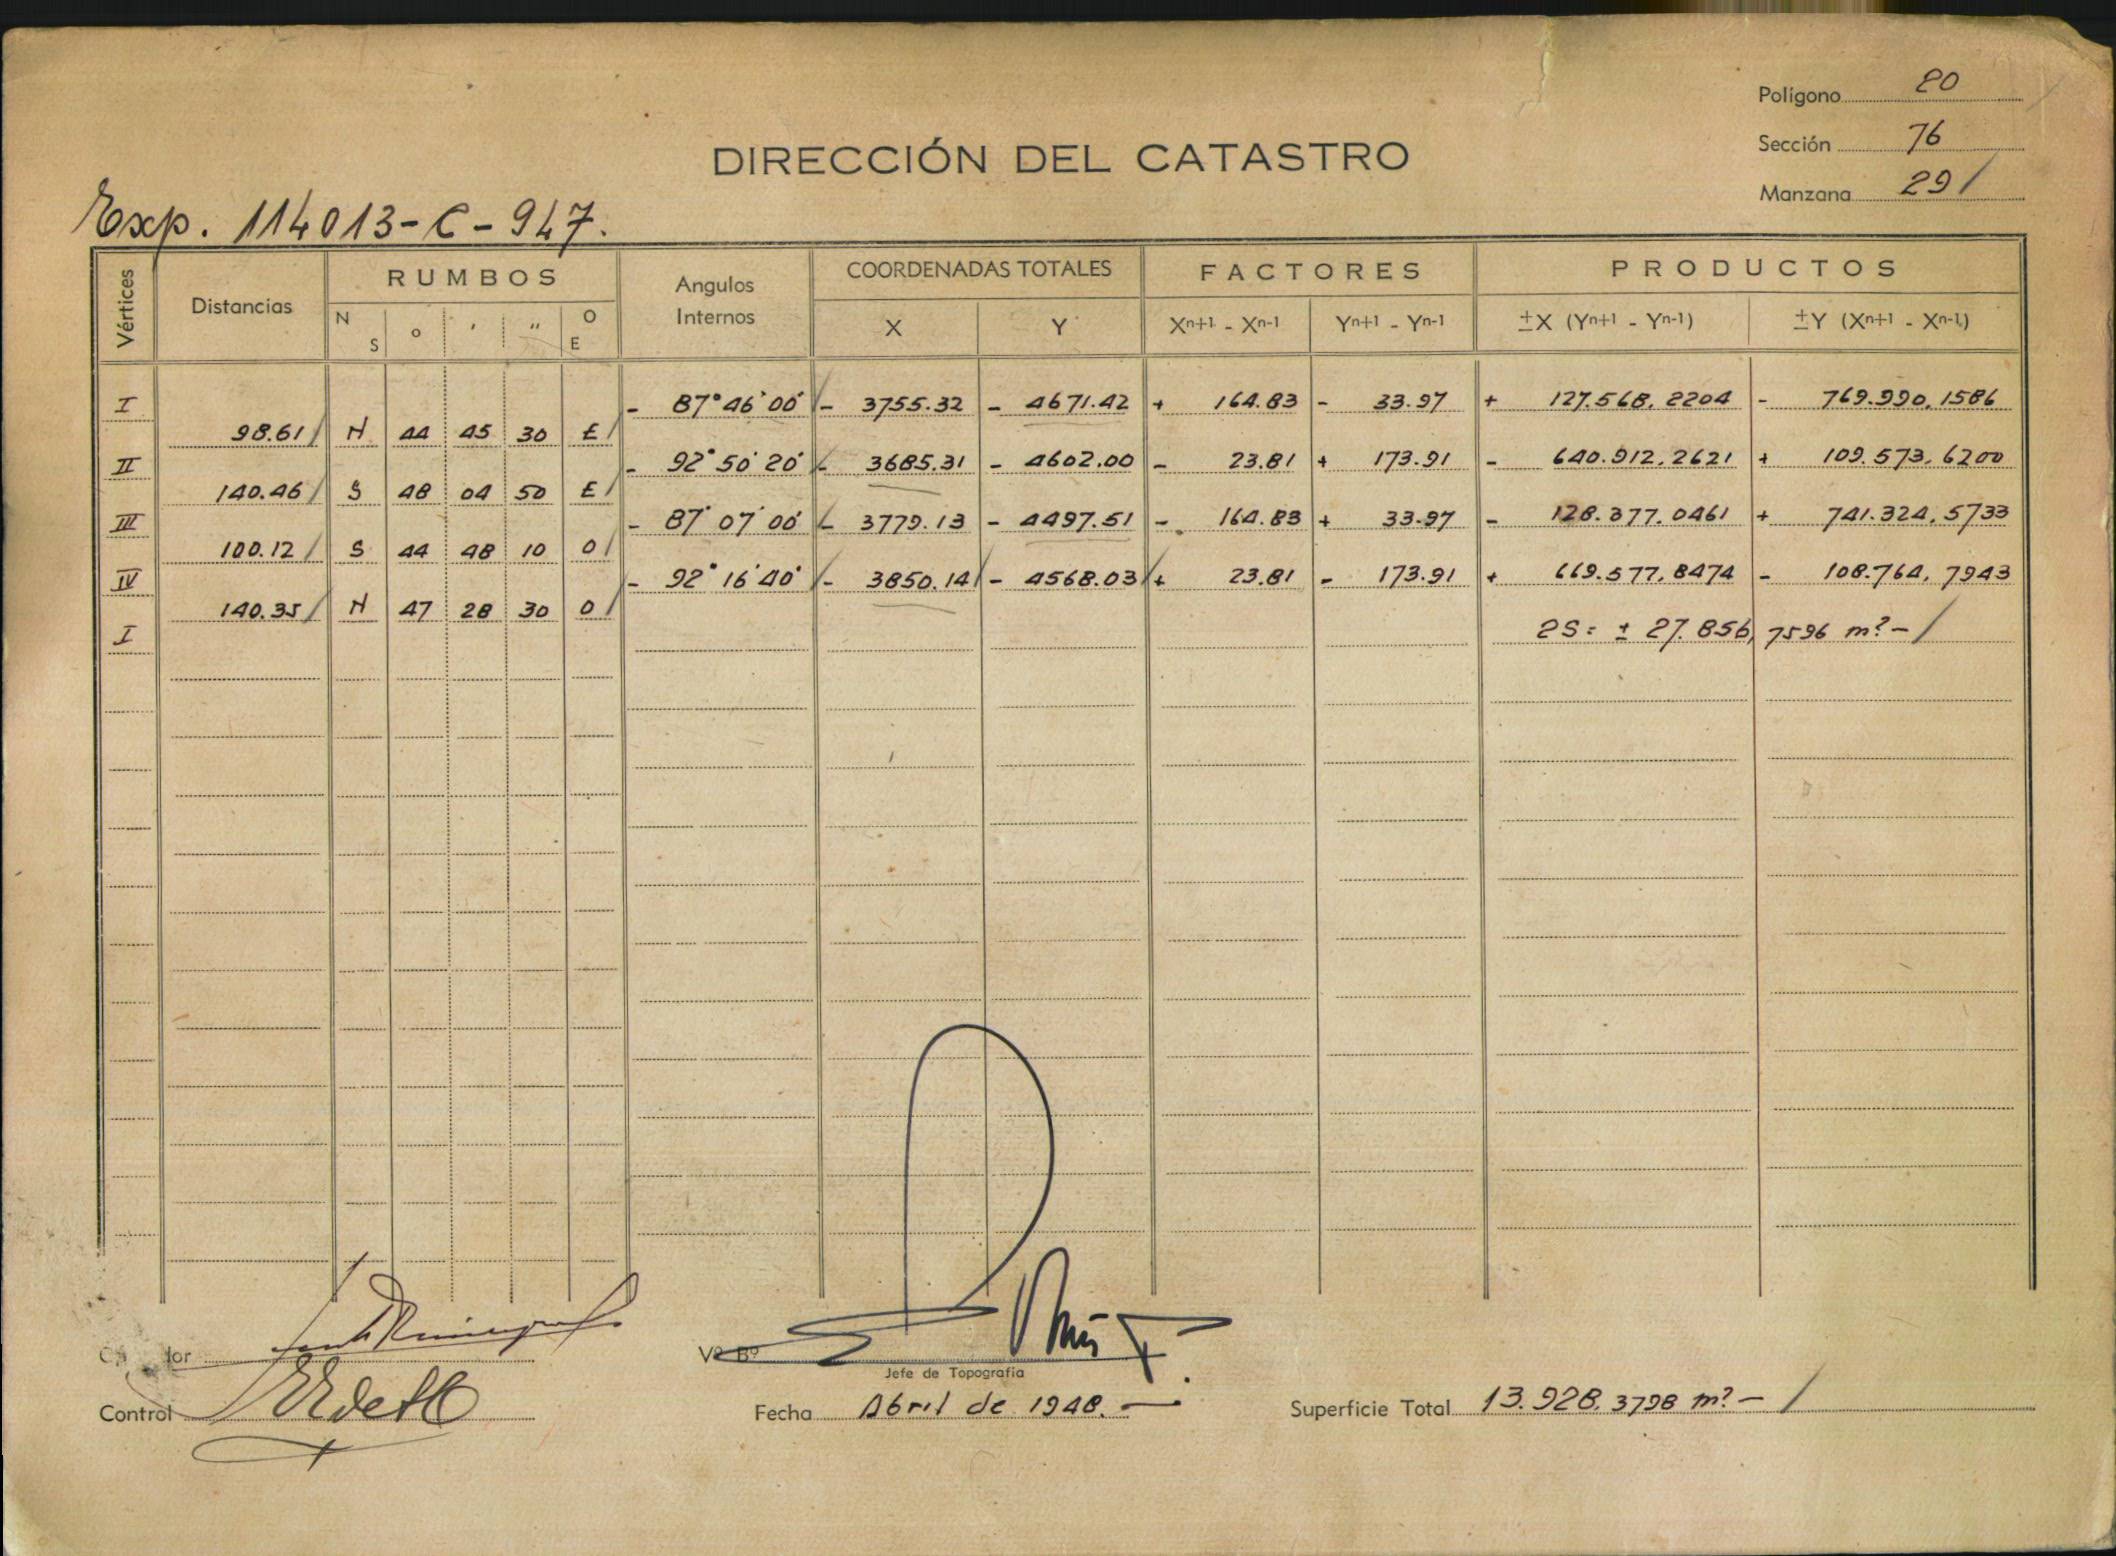 Polígono 20
Sección 76
Manzana 29
DIRECCIÓN DEL CATASTRO
Exp. 114013-C-947.
Vértices Distancias RUMBOS Angulos Internos COORDENADAS TOTALES FACTORES PRODUCTOS
N S o ' '' O E X Y Xn+1 - Xn-1 Yn+1 - Yn-1 ±X (Yn+1 - Yn-1) ±Y (Xn+1 - Xn-1)
I - 87° 46' 00' - 3755.32 - 4671.42 + 164.83 - 33.97 + 127.568,2204 - 769.990,1586
98.61 N 44 45 30 E
II - 92° 50' 20' - 3685.31 - 4602.00 - 23.81 + 173.91 - 640.912,2621 + 109.573,6200
140.46 S 48 04 50 E
III - 87° 07' 00' - 3779.13 - 4497.51 - 164.83 + 33.97 - 128.377,0461 + 741.324,5733
100.12 S 44 48 10 O
IV - 92° 16' 40' - 3850.14 - 4568.03 + 23.81 - 173.91 + 669.577,8474 - 108.764,7943
140.35 N 47 28 30 O
I 2S: ± 27.856,7596 m² -
Vº Bº
Jefe de Topografía
Control
Fecha Abril de 1948. —
Superficie Total 13.928,3798 m² -